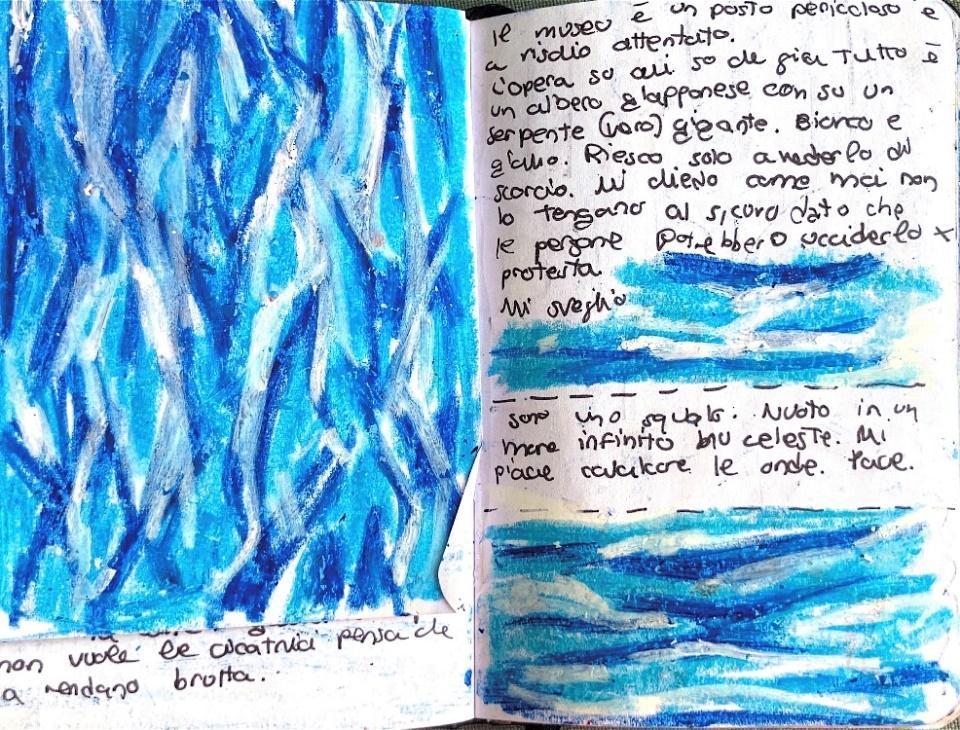 non vuole le cicatrici pensa che
a rendano brutta.
Il museo è un posto pericoloso e
a risdio attentato.
L'opera su cui so che gira tutto è
un albero giapponese con su un
serpente (vero) gigante. Bianco e
giallo. Riesco solo a vederlo di
scorcio. Mi chiedo come mai non
lo tengano al sicuro dato che
le persone potrebbero ucciderlo x
protesta.
Mi sveglio
sono uno squalo. Nuoto in un
mare infinito blu celeste. Mi
piace cavalcare le onde. Pace.